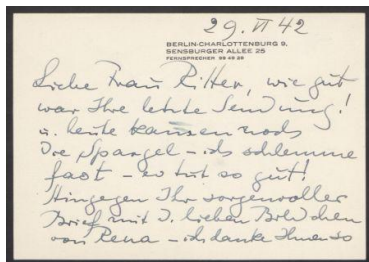 29. VI 42
BERLIN-CHARLOTTENBURG 9,
SENSBURGER ALLEE 25
FERNSPRECHER 99 49 29
Liebe Frau Ritter, wie gut
war Ihre letzte Sendung!
u. heute kamen noch
die Spargel – ich schlemme
fast – es tut so gut!
Hingegen Ihr sorgenvoller
Brief mit d. lieben Bildchen
von Rena – ich danke Ihnen so